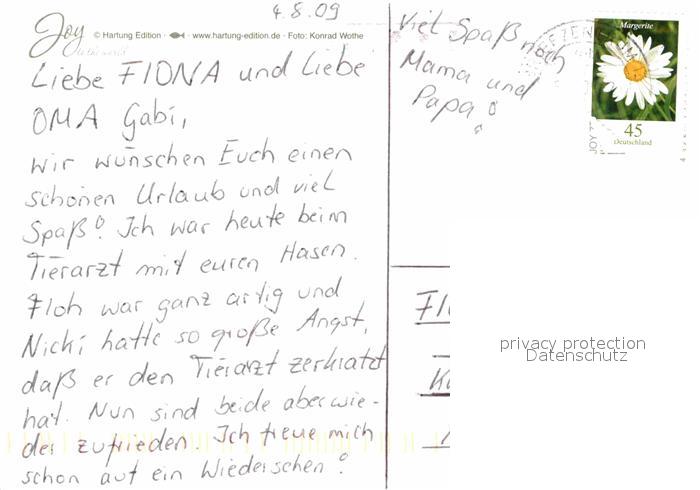 4.8.09
Joy
to the world
© Hartung Edition · www.hartung-edition.de · Foto: Konrad Wothe
Liebe FIONA und Liebe
OMA Gabi,
wir wünschen Euch einen
schönen Urlaub und viel
Spaß! Ich war heute beim
Tierarzt mit euren Hasen.
Floh war ganz artig und
Nicki hatte so große Angst,
daß er den Tierarzt zerkratzt
hat. Nun sind beide aber wie-
der zufrieden. Ich freue mich
schon auf ein Wiedersehen!
Viel Spaß noch
Mama und
Papa!
Margerite
45
Deutschland
privacy protection
Datenschutz